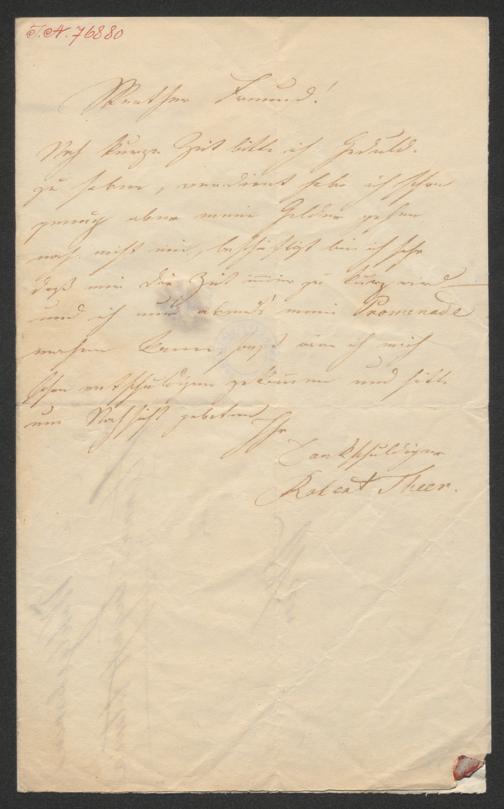 I.N. 76880
Werther Freund!
Noch kurze Zeit bitte ich Geduld
zu haben, verdient habe ich schon
genug aber meine Gelder gehen
noch nicht ein, beschäftigt bin ich sehr
daß mir die Zeit immer zu kurz wird
und ich nur abends meine Promenade
machen kann sonst wäre ich mich
schon entschuldigen gekommen und hätte
um Nachsicht gebeten
Ihr
Dankschuldiger
Robert Theer.